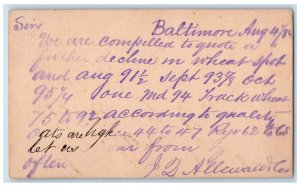 Sirs Baltimore Aug 4/84
We are compelled to quote a
further decline in Wheat Spot
and Aug 91½ Sept 93⅜ Oct
95¼ one Md 94 Track Wheat
75 to 92 according to quality
Oats are high 44 to 47 Rye 62 to 65
let us from
often J D Allewalt & Co